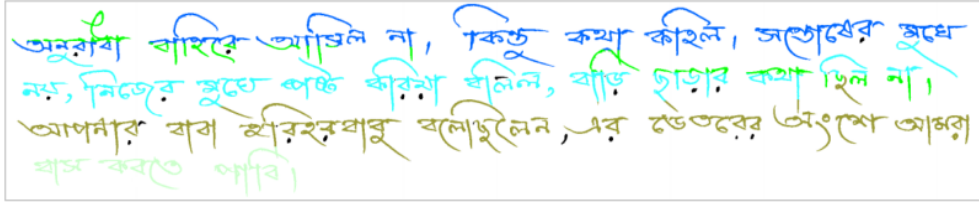 অনুরাধা বাহিরে আসিল না, কিন্তু কথা কহিল, সন্তোষের মুখে
নয়, নিজের মুখে স্পষ্ট করিয়া বলিল, বাড়ি ছাড়ার কথা ছিল না।
আপনার বাবা হরিহরবাবু বলেছিলেন, এর ভেতরের অংশে আমরা
বাস করতে পারি।